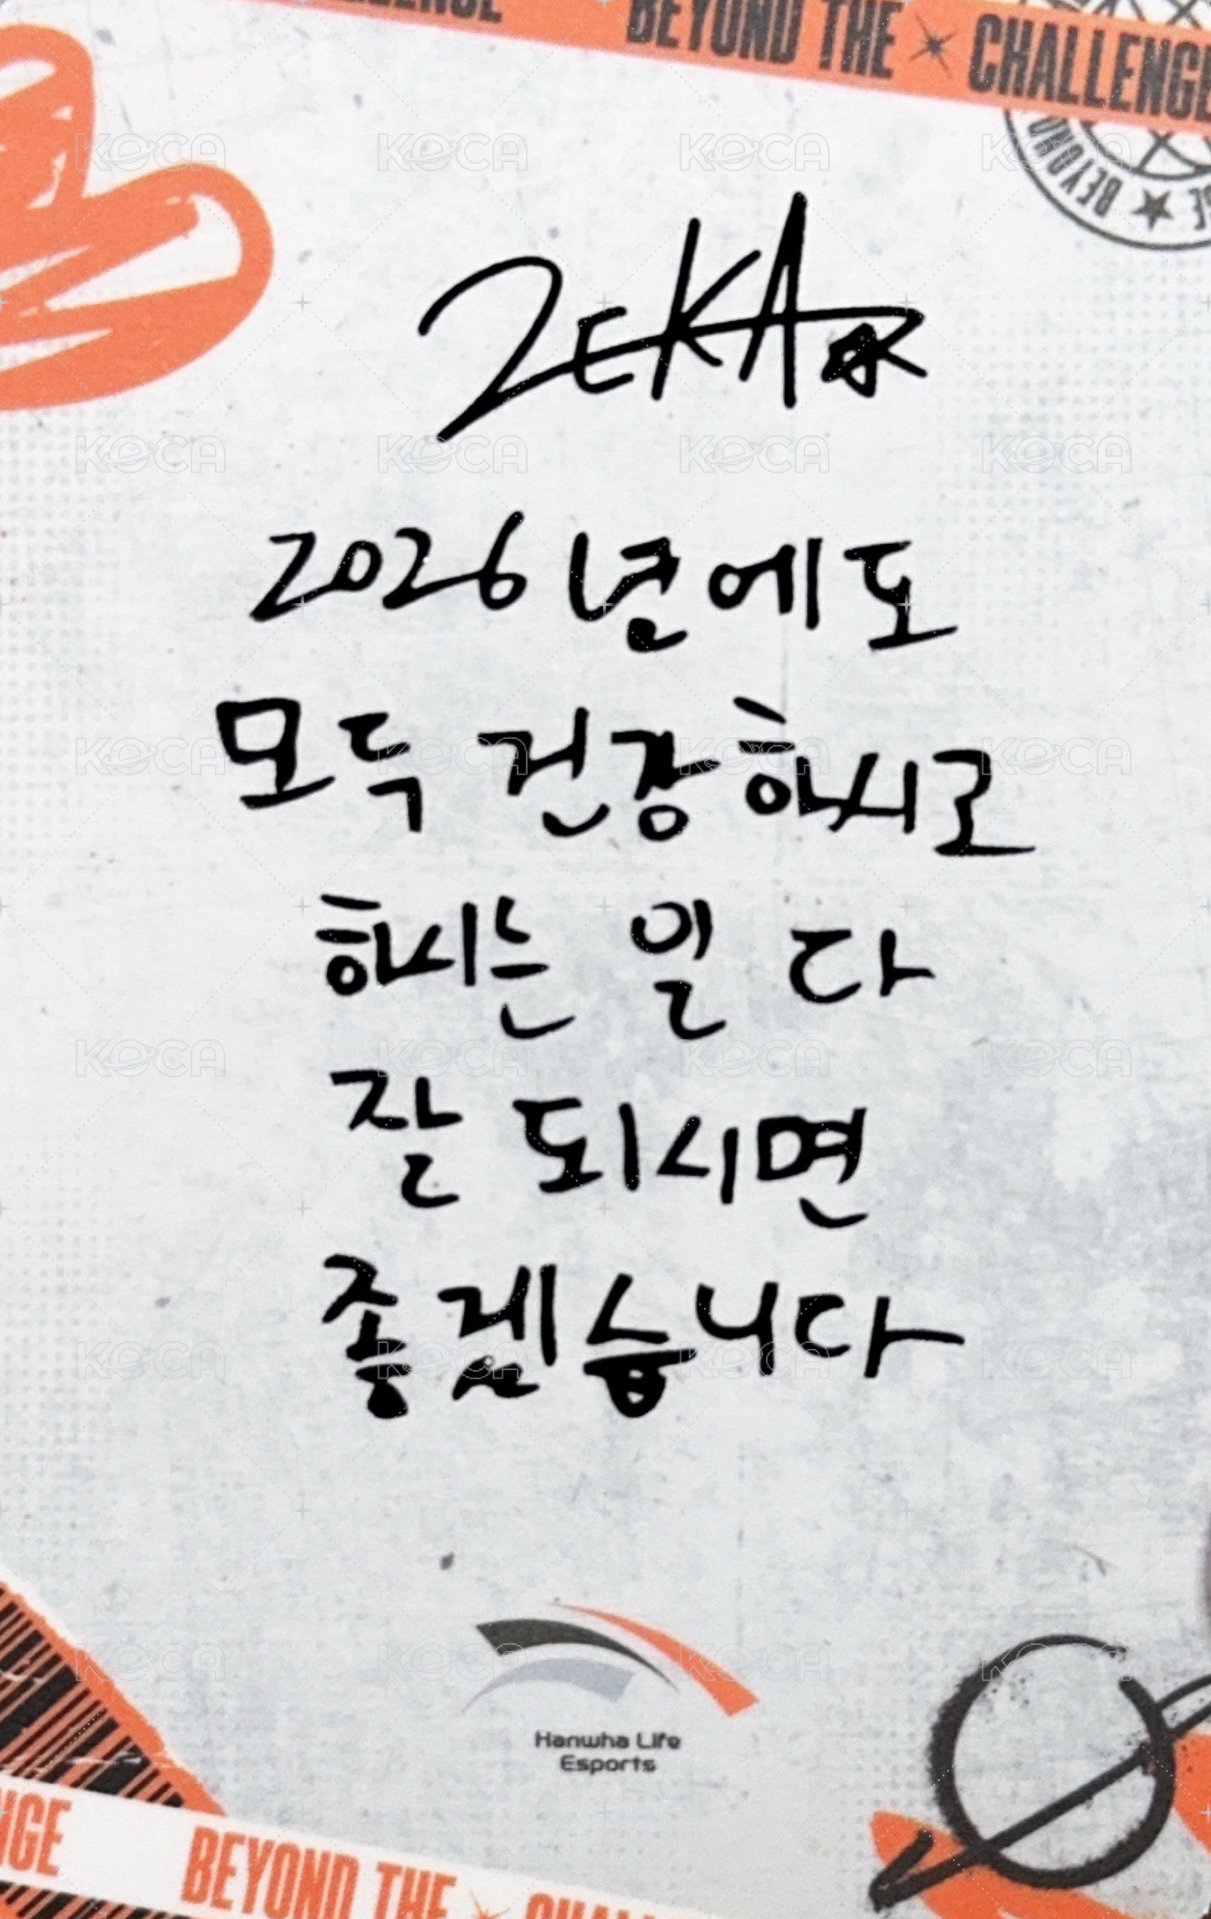 CHALLENGE
BEYOND THE CHALLENGE
BEYOND
ZEKA
2026년에도
모두 건강하시고
하시는 일 다
잘 되시면
좋겠습니다
Hanwha Life
Esports
BEYOND THE CHALLENGE
KOCA